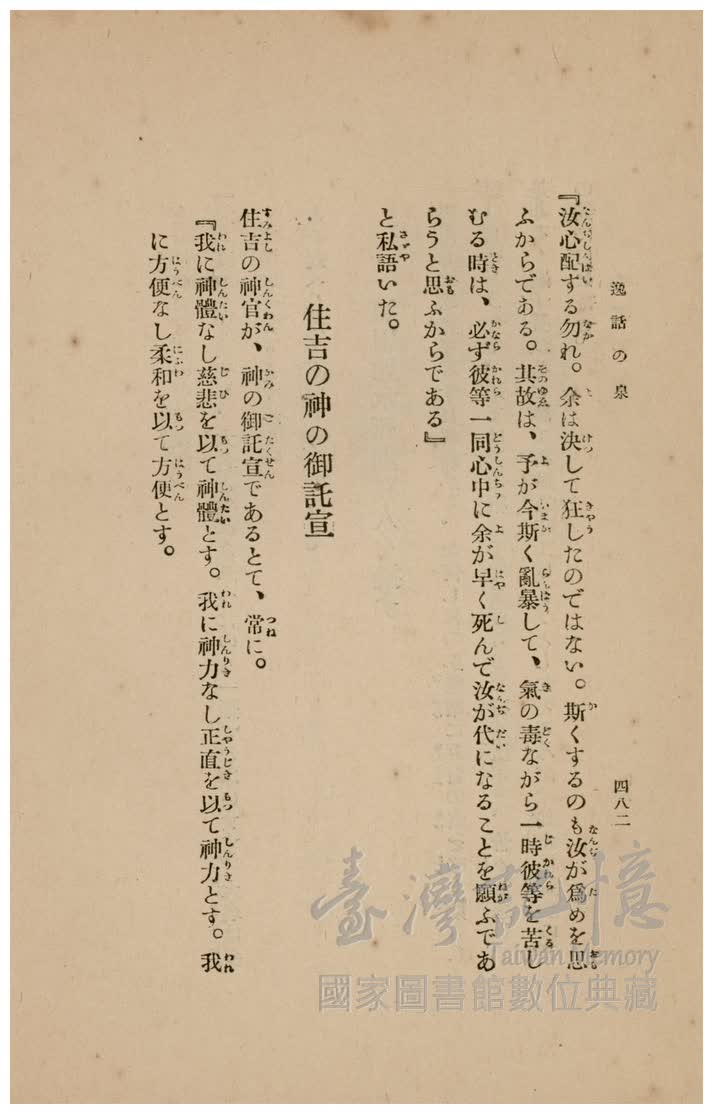 逸話の泉
四八二
『汝心配する勿れ。余は決して狂したのではない。斯くするのも汝が爲めを思
ふからである。其故は、予が今斯く亂暴して、氣の毒ながら一時彼等を苦し
むる時は、必ず彼等一同心中に余が早く死んで汝が代になることを願ふであ
らうと思ふからである』
と私語いた。
住吉の神の御託宣
住吉の神官が、神の御託宣であるとて、常に。
『我に神體なし慈悲を以て神體とす。我に神力なし正直を以て神力とす。我
に方便なし柔和を以て方便とす。
臺灣記憶
Taiwan Memory
國家圖書館數位典藏